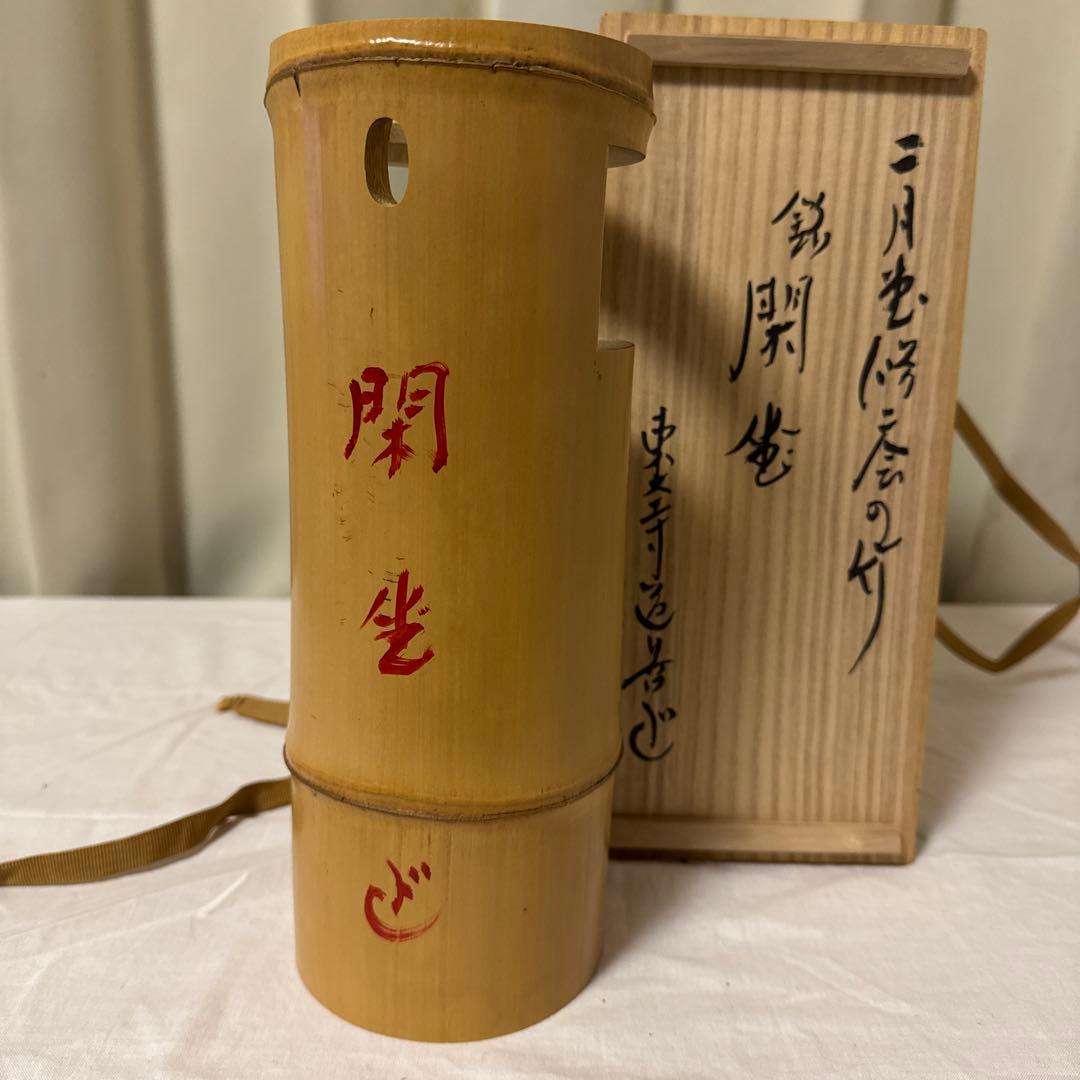 閑坐
二月堂修二会の竹
銘 閑坐
東大寺道善